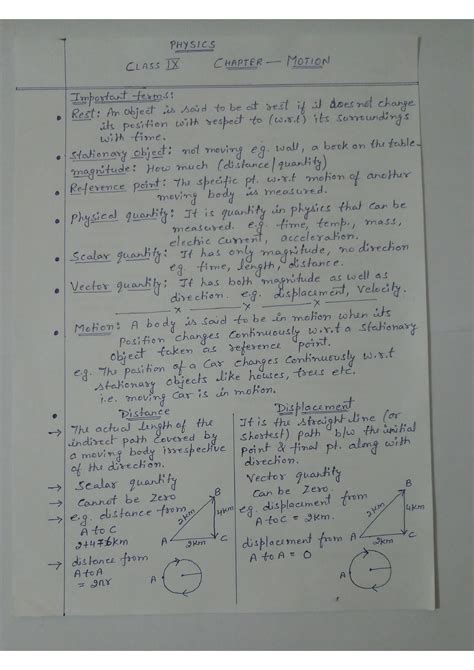 PHYSICS
CLASS IX CHAPTER — MOTION
Important terms:
Rest: An Object is said to be at rest if it does not change
its position with respect to (w.r.t) its surroundings
with time.
Stationary object: not moving e.g. wall, a book on the table
magnitude: How much (distance/quantity)
Reference point: The specific pt. w.r.t motion of another
moving body is measured.
Physical quantity: It is quantity in physics that can be
measured. e.g. time, temp., mass,
electric current, acceleration.
Scalar quantity: It has only magnitude, no direction
e.g. time, length, distance.
Vector quantity: It has both magnitude as well as
direction. e.g. displacement, Velocity.
Motion: A body is said to be in motion when its
Position changes Continuously w.r.t a stationary
Object taken as reference point.
e.g. The position of a Car changes Continuously w.r.t
stationary objects like houses, trees etc.
i.e. moving Car is in motion.
Distance
→ The actual length of the
indirect path covered by
a moving body irrespective
of the direction.
→ Scalar quantity
→ Cannot be Zero
→ e.g. distance from
A to C
2+4=6km
A B C
2km 4km 2km
→ distance from
A to A
= 2πr
A
Displacement
It is the straight line (or
shortest) path b/w the initial
point & final pt. along with
direction.
Vector quantity
Can be Zero.
e.g. displacement from
A to C = 2km.
A B C
2km 4km 2km
displacement from
A to A = 0
A